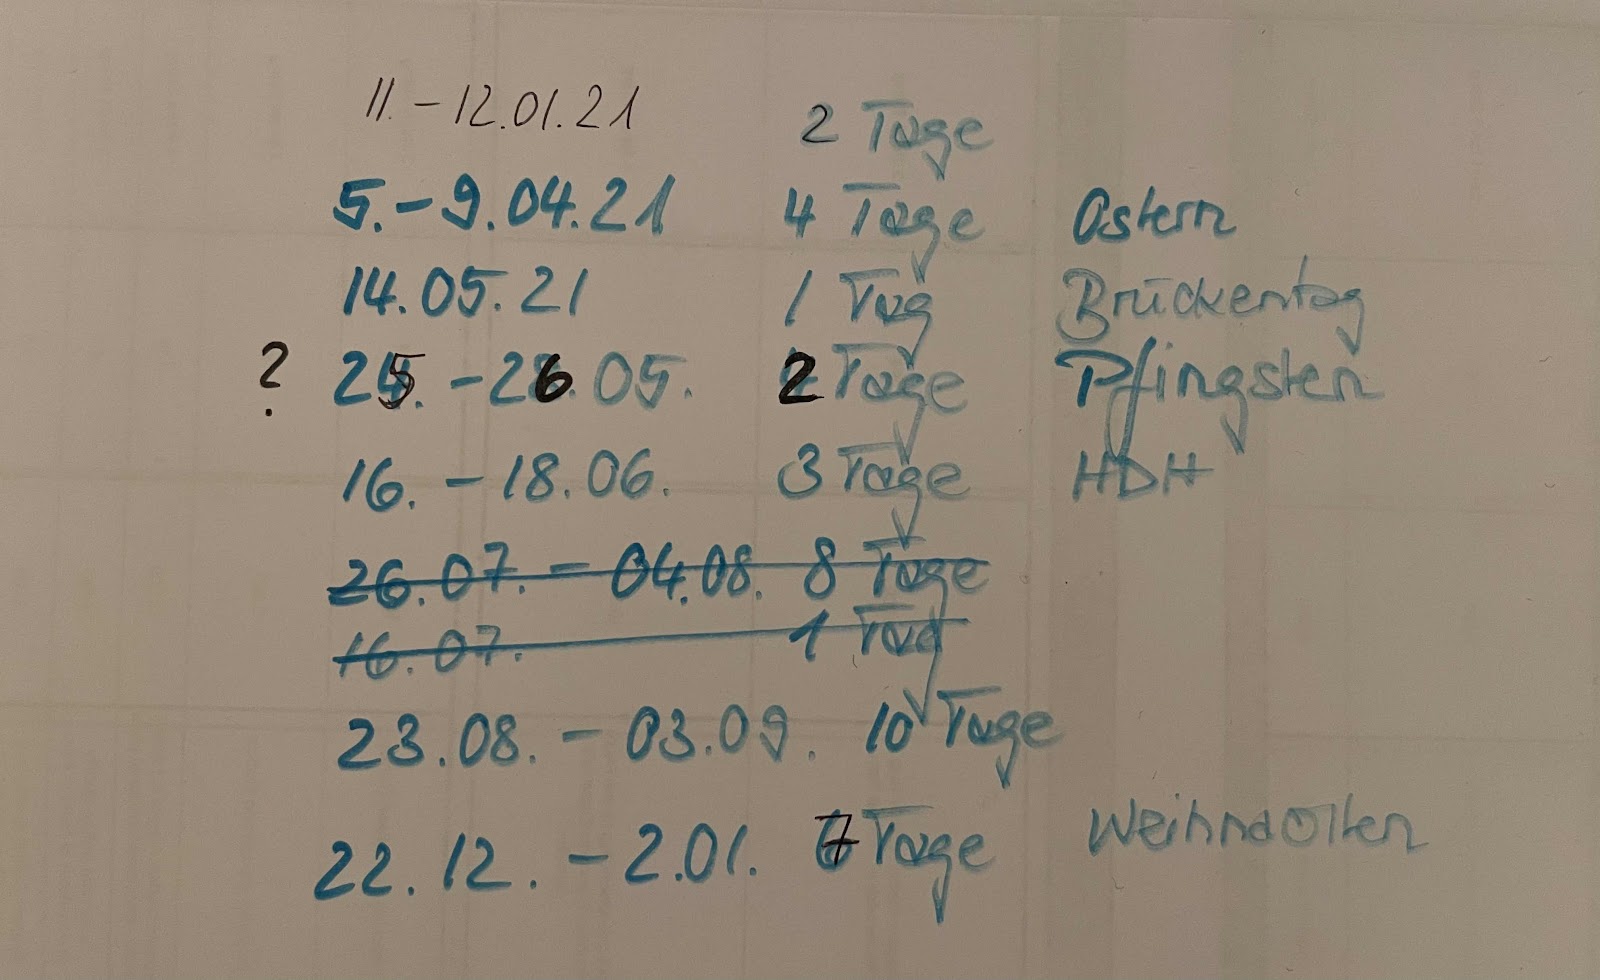 11. - 12.01.21 2 Tage
5. - 9.04.21 4 Tage Ostern
14.05.21 1 Tag Brückentag
? 25. - 26.05. 2 Tage Pfingsten
16. - 18.06. 3 Tage HDH
26.07. - 04.08. 8 Tage
16.07. 1 Tag
23.08. - 03.09. 10 Tage
22.12. - 2.01. 7 Tage Weihnachten